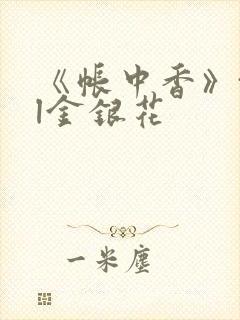 《帐中香》
l金银花
一米尘